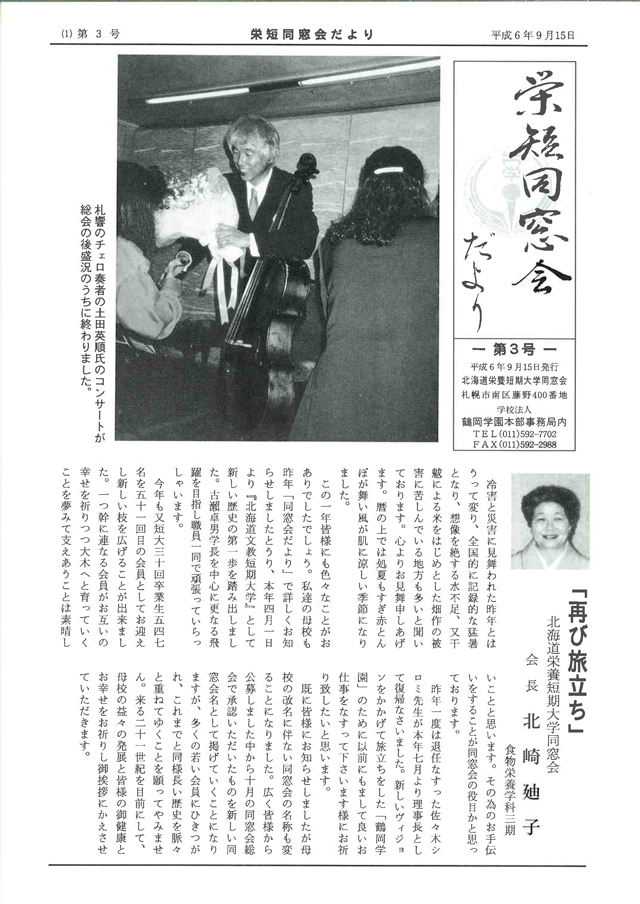 (1) 第 3 号
栄短同窓会だより
平成6年9月15日
栄短同窓会
だより
― 第3号 ―
平成6年9月15日発行
北海道栄養短期大学同窓会
札幌市南区藤野400番地
学校法人
鶴岡学園本部事務局内
TEL(011)592-7702
FAX(011)592-2988
札響のチェロ奏者の土田英順氏のコンサートが
総会の後盛況のうちに終わりました。
「再び旅立ち」
北海道栄養短期大学同窓会
会 長 北 崎 廸 子
食物栄養学科三期
冷害と災害に見舞われた昨年とは
うって変り、全国的に記録的な猛暑
となり、想像を絶する水不足、又干
魃による米をはじめとした畑作の被
害に苦しんでいる地方も多いと聞い
ております。心よりお見舞申しあげ
ます。暦の上では処夏もすぎ赤とん
ぼが舞い風が肌に涼しい季節になり
ました。
この一年皆様にも色々なことがお
ありでしたでしょう。私達の母校も
昨年「同窓会だより」で詳しくお知
らせしましたとうり、本年四月一日
より『北海道文教短期大学』として
新しい歴史の第一歩を踏み出しまし
た。古瀬卓男学長を中心に更なる飛
躍を目指し職員一同で頑張っていらっ
しゃいます。
今年も又短大三十回卒業生五四七
名を五十一回目の会員としてお迎え
し新しい枝を広げることが出来まし
た。一つ幹に連なる会員がお互いの
幸せを祈りつつ大木へと育っていく
ことを夢みて支えあうことは素晴し
いことと思います。その為のお手伝
いをすることが同窓会の役目かと思っ
ております。
昨年一度は退任なすった佐々木シ
ロミ先生が本年七月より理事長とし
て復帰なさいました。新しいヴィジョ
ンをかかげて旅立ちをした「鶴岡学
園」のために以前にもまして良いお
仕事をなすって下さいます様にお祈
り致したいと思います。
既に皆様にお知らせしましたが母
校の改名に伴ない同窓会の名称も変
ることになりました。広く皆様から
公募しました中から十月の同窓会総
会で承認いただいたものを新しい同
窓会名として掲げていくことになり
ますが、多くの若い会員にひきつが
れ、これまでと同様長い歴史を脈々
と重ねてゆくことを願ってやみませ
ん。来る二十一世紀を目前にして、
母校の益々の発展と皆様の御健康と
お幸せをお祈りし御挨拶にかえさせ
ていただきます。